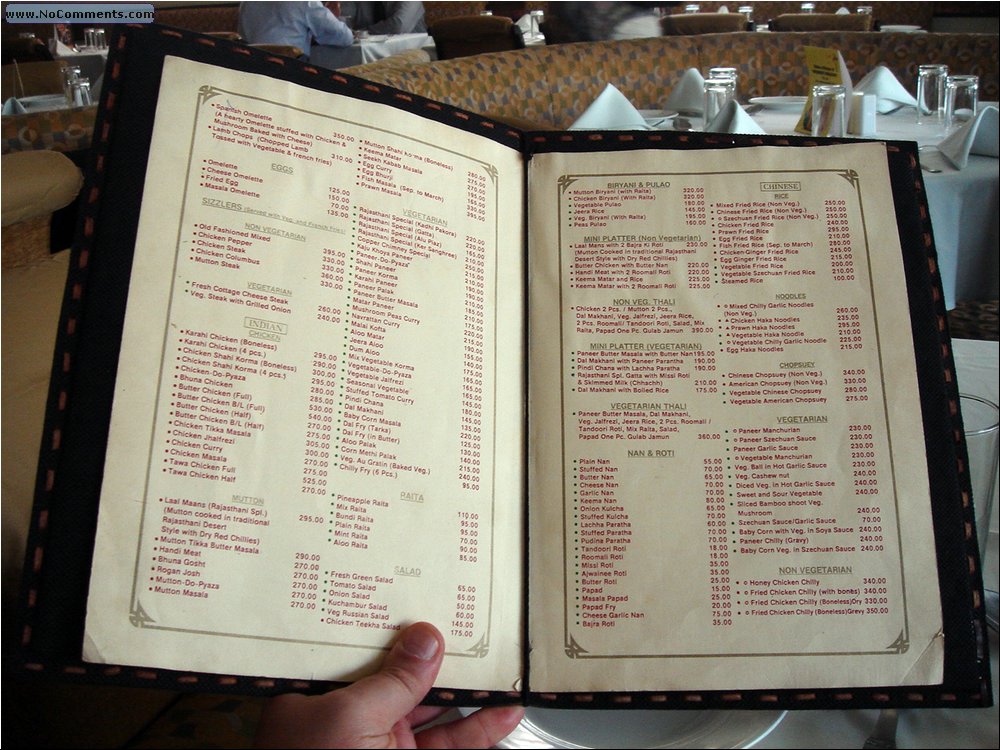 www.NoComments.com
Spanish Omelette
(A hearty Omelette stuffed with Chicken &
Mushroom Baked with Cheese) 350.00
Lamb Chops (Chopped Lamb 310.00
Tossed with Vegetable & french fries)
EGGS
Omelette 125.00
Cheese Omelette 150.00
Fried Egg 70.00
Masala Omelette 135.00
SIZZLERS (Served with Veg. and French Fries)
NON VEGETARIAN
Old Fashioned Mixed 395.00
Chicken Pepper 330.00
Chicken Steak 330.00
Chicken Columbus 360.00
Mutton Steak 330.00
VEGETARIAN
Fresh Cottage Cheese Steak 260.00
Veg. Steak with Grilled Onion 240.00
INDIAN
CHICKEN
Karahi Chicken (Boneless) 295.00
Karahi Chicken (4 pcs.) 290.00
Chicken Shahi Korma (Boneless) 300.00
Chicken Shahi Korma (4 pcs.) 295.00
Chicken-Do-Pyaza 280.00
Bhuna Chicken 285.00
Butter Chicken (Full) 530.00
Butter Chicken B/L (Full) 540.00
Butter Chicken (Half) 270.00
Butter Chicken B/L (Half) 275.00
Chicken Tikka Masala 305.00
Chicken Jhalfrezi 300.00
Chicken Masala 270.00
Chicken Curry 275.00
Tawa Chicken Full 525.00
Tawa Chicken Half 270.00
MUTTON
Laal Maans (Rajasthani Spl.) 295.00
(Mutton cooked in traditional
Rajasthani Desert
Style with Dry Red Chillies)
Mutton Tikka Butter Masala 290.00
Handi Meat 270.00
Bhuna Gosht 270.00
Rogan Josh 270.00
Mutton-Do-Pyaza 270.00
Mutton Masala 270.00
Mutton Shahi korma (Boneless) 280.00
Keema Matar 275.00
Seekh Kabab Masala 270.00
Egg Curry 195.00
Egg Bhurji 165.00
Fish Masala (Sep. to March) 330.00
Prawn Masala 395.00
VEGETARIAN
Rajasthani Special (Kadhi Pakora) 220.00
Rajasthani Special (Gatta) 220.00
Rajasthani Special (Alu Piaz) 165.00
Rajasthani Special (Ker Sanghree)
Copper Chimney Special
Kaju Khoya Paneer
Paneer-Do-Pyaza
Shahi Paneer
Paneer Korma
Karahi Paneer
Paneer Palak
Paneer Butter Masala
Matar Paneer
Mushroom Peas Curry
Navrattan Curry
Malai Kofta
Aloo Matar
Jeera Aloo
Dum Aloo
Mix Vegetable Korma
Vegetable-Do-Pyaza
Vegetable Jalfrezi
Seasonal Vegetable
Stuffed Tomato Curry
Pindi Chana
Dal Makhani
Baby Corn Masala
Dal Fry (Tarka)
Dal Fry (in Butter)
Aloo Palak
Corn Methi Palak 140.00
Veg. Au Gratin (Baked Veg.) 215.00
Chilly Fry (6 Pcs.) 240.00
95.00
RAITA
Pineapple Raita 110.00
Mix Raita 95.00
Bundi Raita 95.00
Plain Raita 70.00
Mint Raita 90.00
Aloo Raita 85.00
SALAD
Fresh Green Salad 65.00
Tomato Salad 65.00
Onion Salad 50.00
Kuchambur Salad 60.00
Veg Russian Salad 145.00
Chicken Teekha Salad 175.00
BIRYANI & PULAO
Mutton Biryani (with Raita) 320.00
Chicken Biryani (With Raita) 320.00
Vegetable Pulao 180.00
Jeera Rice 145.00
Veg. Biryani (With Raita) 195.00
Peas Pulao 160.00
MINI PLATTER (Non Vegetarian)
Laal Maas with 2 Bajra Ki Roti 230.00
(Mutton Cooked in traditional Rajasthani
Desert Style with Dry Red Chillies)
Butter Chicken with Butter Nan 220.00
Handi Meat with 2 Roomali Roti 220.00
Keema Matar and Rice 225.00
Keema Matar with 2 Roomali Roti 225.00
NON VEG. THALI
Chicken 2 Pcs. / Mutton 2 Pcs.,
Dal Makhani, Veg. Jalfrezi, Jeera Rice,
2 Pcs. Roomali/ Tandoori Roti, Salad, Mix
Raita, Papad One Pc. Gulab Jamun 390.00
MINI PLATTER (VEGETARIAN)
Paneer Butter Masala with Butter Nan 195.00
Dal Makhani with Paneer Parantha 190.00
Pindi Chana with Lachha Paratha 190.00
Rajasthani Spl. Gatta with Missi Roti
& Skimmed Milk (Chhachh) 210.00
Dal Makhani with Boiled Rice 175.00
VEGETARIAN THALI
Paneer Butter Masala, Dal Makhani,
Veg. Jalfrezi, Jeera Rice, 2 Pcs. Roomali /
Tandoori Roti, Mix Raita, Salad,
Papad One Pc. Gulab Jamun 360.00
NAN & ROTI
Plain Nan 55.00
Stuffed Nan 70.00
Butter Nan 65.00
Cheese Nan 70.00
Garlic Nan 70.00
Keema Nan 80.00
Onion Kulcha 65.00
Stuffed Kulcha 70.00
Lachha Paratha 60.00
Stuffed Paratha 70.00
Pudina Paratha 70.00
Tandoori Roti 18.00
Roomali Roti 18.00
Missi Roti 35.00
Ajwainee Roti 35.00
Butter Roti 25.00
Papad 15.00
Masala Papad 25.00
Papad Fry 20.00
Cheese Garlic Nan 75.00
Bajra Roti 35.00
CHINESE
RICE
Mixed Fried Rice (Non Veg.) 250.00
Chinese Fried Rice (Non Veg.) 250.00
Szechuan Fried Rice (Non Veg.) 250.00
Chicken Fried Rice 240.00
Prawn Fried Rice 295.00
Egg Fried Rice 210.00
Fish Fried Rice (Sep. to March) 280.00
Chicken-Ginger Fried Rice 245.00
Egg Ginger Fried Rice 215.00
Vegetable Fried Rice 200.00
Vegetable Szechuan Fried Rice 210.00
Steamed Rice 100.00
NOODLES
Mixed Chilly Garlic Noodles
(Non Veg.) 260.00
Chicken Haka Noodles 235.00
Prawn Haka Noodles 295.00
Vegetable Haka Noodle 210.00
Vegetable Chilly Garlic Noodle 225.00
Egg Haka Noodles 215.00
CHOPSUEY
Chinese Chopsuey (Non Veg.) 340.00
American Chopsuey (Non Veg.) 330.00
Vegetable Chinese Chopsuey 280.00
Vegetable American Chopsuey 275.00
VEGETARIAN
Paneer Manchurian 230.00
Paneer Szechuan Sauce 230.00
Paneer Garlic Sauce 230.00
Vegetable Manchurian 230.00
Veg. Ball in Hot Garlic Sauce 230.00
Veg. Cashew nut 240.00
Diced Veg. in Hot Garlic Sauce 240.00
Sweet and Sour Vegetable 240.00
Sliced Bamboo shoot Veg.
Mushroom 240.00
Szechuan Sauce/Garlic Sauce 70.00
Baby Corn with Veg. in Soya Sauce 240.00
Paneer Chilly (Gravy) 240.00
Baby Corn Veg. in Szechuan Sauce 240.00
NON VEGETARIAN
Honey Chicken Chilly 340.00
Fried Chicken Chilly (with bones) 340.00
Fried Chicken Chilly (Boneless)Dry 330.00
Fried Chicken Chilly (Boneless)Grevy 350.00